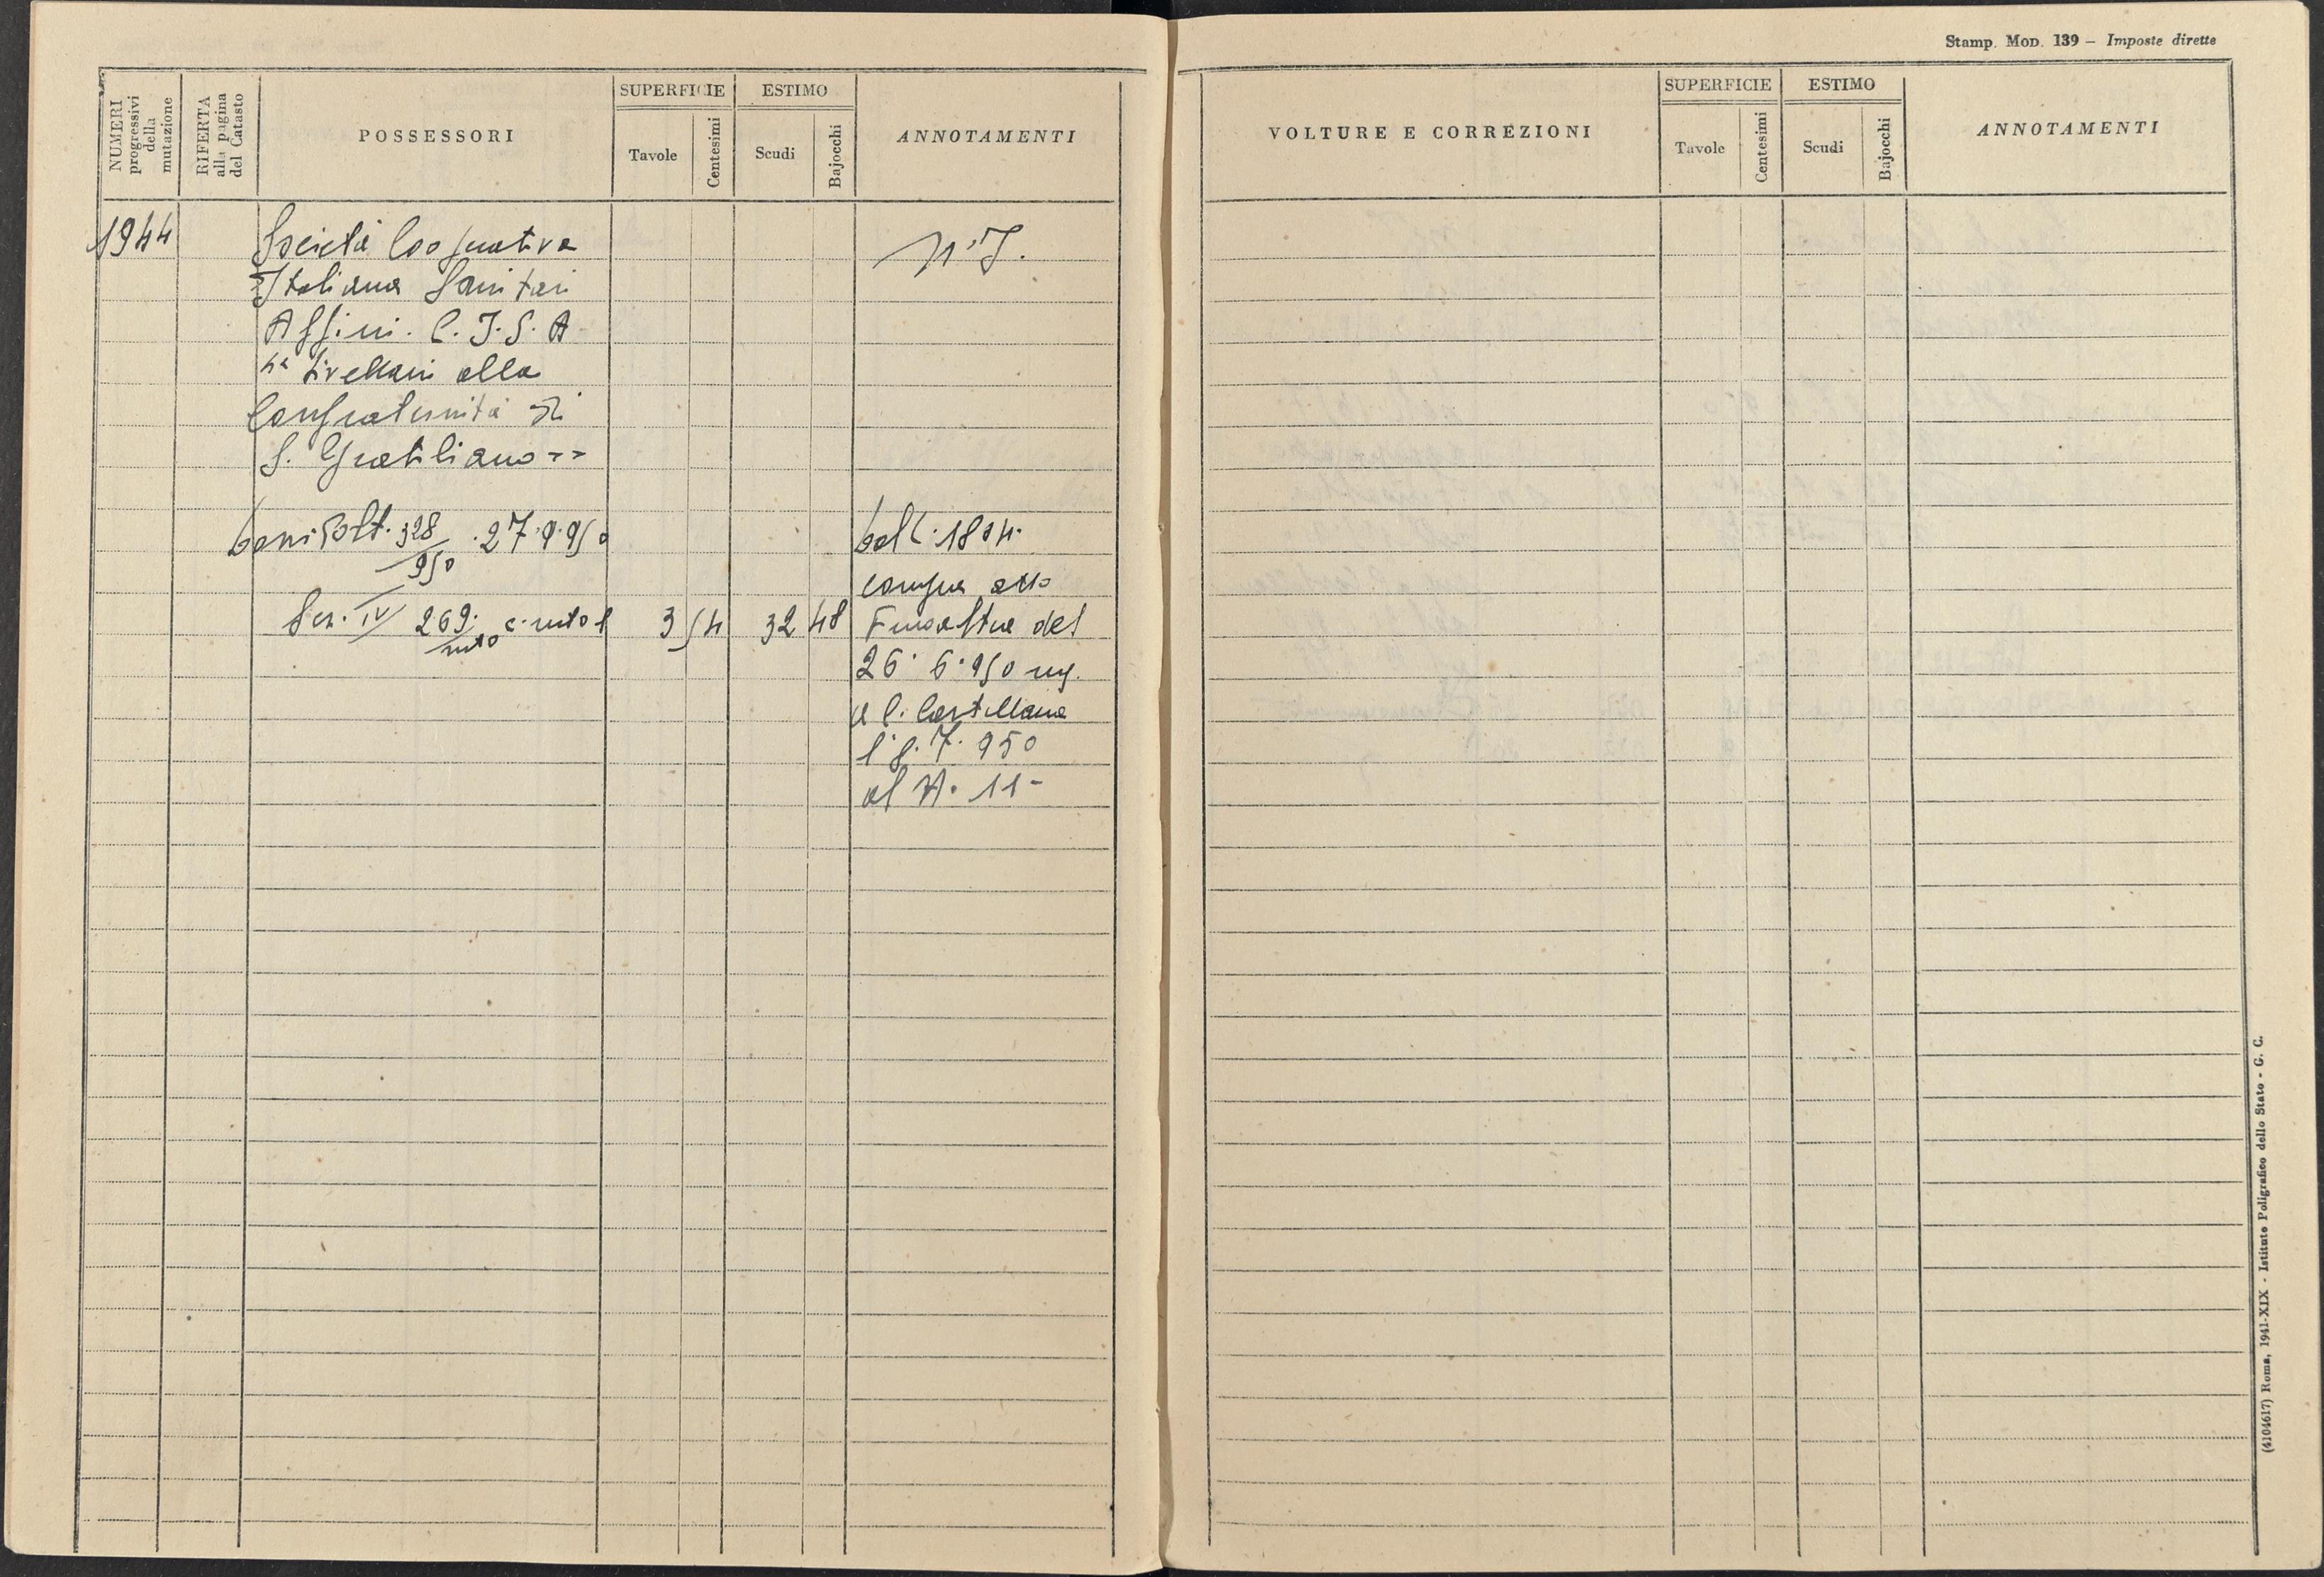 Stamp. Mod. 139 – Imposte dirette
NUMERI progressivi della mutazione
RIFERTA alla pagina del Catasto
POSSESSORI
SUPERFICIE
Tavole
Centesimi
ESTIMO
Scudi
Bajocchi
ANNOTAMENTI
1944
Società Cooperativa
Italiana Sanitari
Affini. C. I. S. A
livellari alla
Confraternita di
S. Gratiliano
328 27.9.950
950
Sez. IV 269 3 54 32 48
1804.
compra atto
del
26. 6. 950 reg.
a C. Castellana
7. 950
al N. 11
VOLTURE E CORREZIONI
SUPERFICIE
Tavole
Centesimi
ESTIMO
Scudi
Bajocchi
ANNOTAMENTI
(4104617) Roma, 1941-XIX - Istituto Poligrafico dello Stato - G. C.